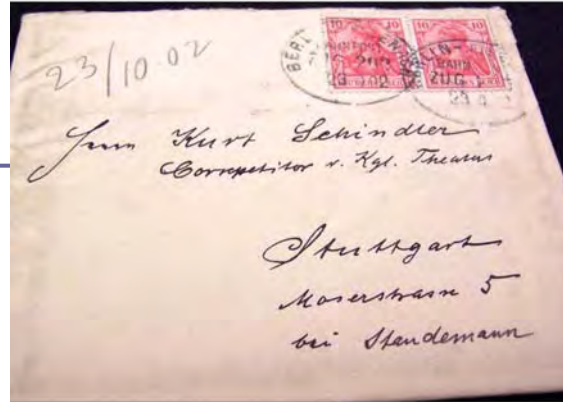 23/10.02
10 10 10 10
BERL
202
BAHN
ZUG
Herrn Kurt Schindler
Correpetitor v. Kgl. Theaters
Stuttgart
Moserstrasse 5
bei Standemann